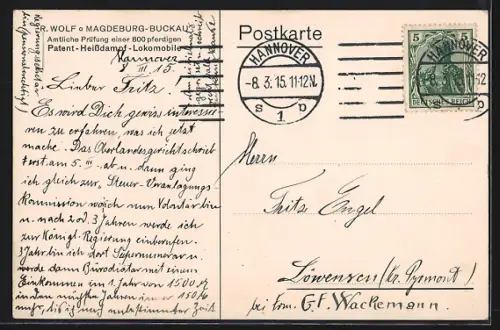 R. WOLF ○ MAGDEBURG-BUCKAU
Amtliche Prüfung einer 800 pferdigen
Patent-Heißdampf-Lokomobile
Hannover
8 III 15.
Lieber Fritz!
Es wird Dich gewiss interessie-
ren zu erfahren, was ich jetzt
mache. Das Oberlandesgericht schrieb
erst am 5. III. ab u. dann ging
ich gleich zur Steuer-Veranlagungs-
kommission wo ich nun Volontär bin
u. nach 2 od. 3 Jahren werde ich
zur Königl. Regierung einberufen.
3 Jahr bin ich dort Supernumerar u.
werde dann Bürodiätar mit einem
Einkommen im 1. Jahr von 1500 M
in den nächsten Jahren 150 M
mehr, bis ich nach unbestimmter Zeit
Regierungssekretär
Postkarte
HANNOVER
-8.3.15.11-12N.
S 1 b
5 5
DEUTSCHES REICH
HANNOVER
Herrn
Fritz Engel
Löwensen (Kr. Pyrmont)
bei Frm. G. F. Wackemann.